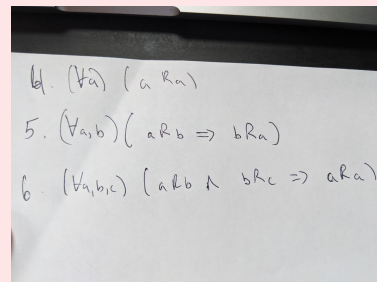 4. (∀a) (aRa)
5. (∀a,b) (aRb => bRa)
6. (∀a,b,c) (aRb ∧ bRc => aRa)